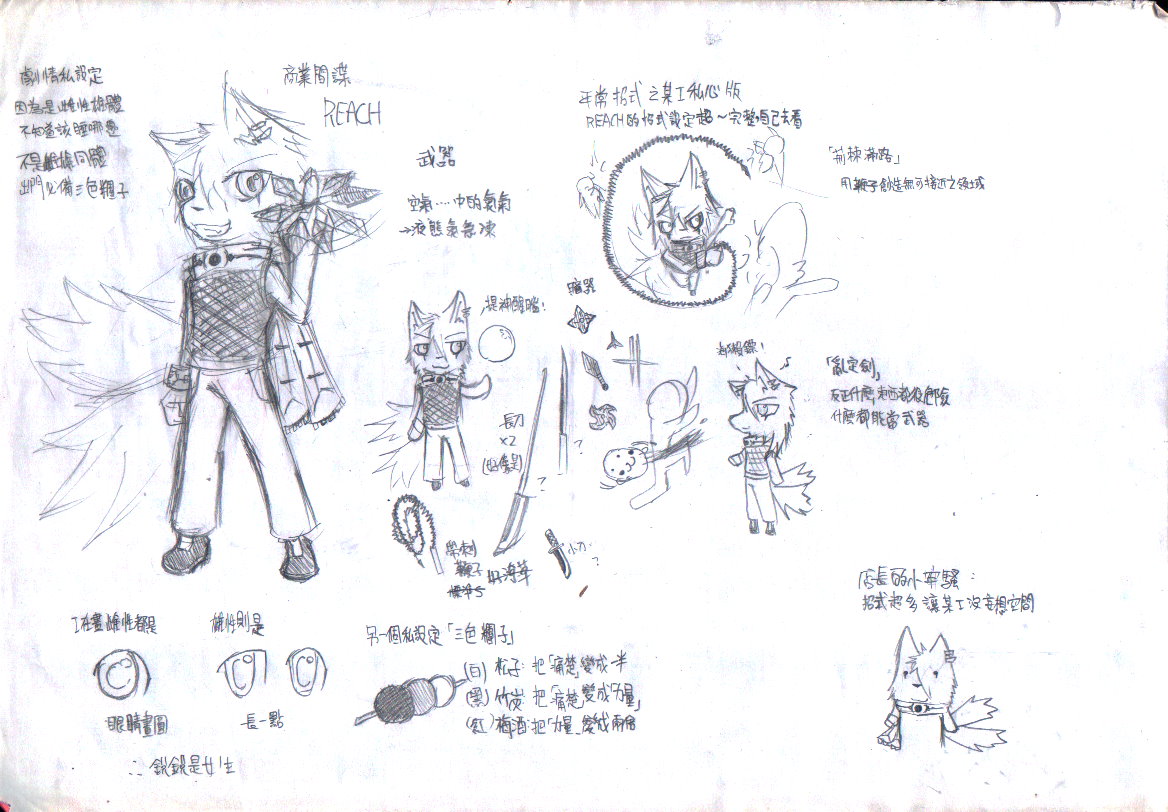 劇情私設定
因為是雌性雄體
不知道該睡哪邊
不是雌雄同體
出門必備三色糰子
商業間諜
REACH
武器
空氣....中的氮氣
→液態氮急凍
提神醒腦!
長刀
x2
(好像是)
?
?
小刀
?
帶刺
鞭子
好海草
暗器
平常招式之某I私心版
REACH的招式設定超~完整自己去看
「荊棘滿路」
用鞭子創造無可接近之領域
「亂定劍」
反正什麼東西都很危險
什麼都能當武器
店長的小牢騷:
招式超多讓某I沒妄想空間
I在畫雌性都是
眼睛畫圓
雄性則是
長一點
∴銳銳是女生
另一個私設定「三色糰子」
(白) 松子:把「痛楚」變成一半
(黑) 竹炭:把「痛楚」變成「力量」
(紅) 梅酒:把「力量」變成兩倍